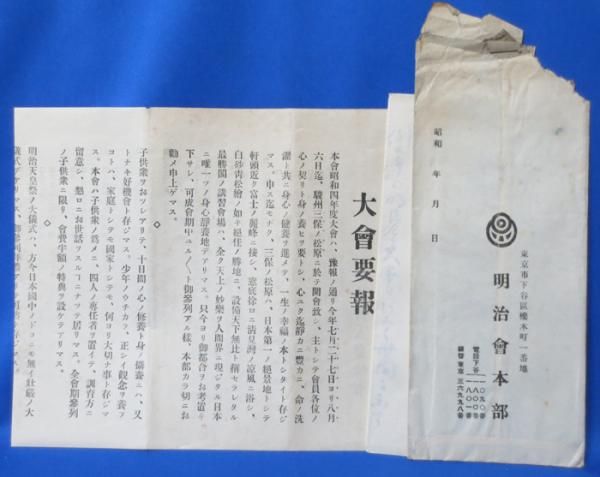 大會要報
本會昭和四年度大會ハ、豫報ノ通リ今年七月二十七日ヨリ八月
六日迄、駿州三保ノ松原ニ於テ開會致シ、主トシテ會員各位ノ
心ノ契リト身ノ養ヒヲ要トシ、心ユク迄靜カニ豐カニ、命ノ洗
濯ト共ニ身心ノ健養ヲ進メテ、一生ノ幸福ノ本トシタイト存ジ
マス。申ス迄モナク、三保ノ松原ハ、日本第一ノ絕景地トシテ
軒頭近ク富士ノ麗峰ニ接シ、窓底徐ロニ淸見灣ノ凉風ニ浴シ、
白沙靑松繪ノ如キ絕佳ノ勝地ニ、設備天下無比ト稱セラレタル
最勝閣ノ講習會場ハ、全ク天上ノ妙樂ヲ人間界ニ現ジタル日本
ニ唯一ツノ身心靜養地デアリマス。只今ヨリ御都合ヲお考置キ
下サレ、可成會期中ユル〱ト御參列アル樣、本部カラ切ニお
勸メ申上ゲマス。
◇
子供衆ヲおツレアリテ、十日間ノ心ノ修養ト身ノ儲養ニハ、又
トナキ好機會ト存ジマス。少年ノウチカラ、正シイ觀念ヲ養フ
コトハ、家庭トシテモ國家トシテモ、何ヨリ大切ナ事ト存ジマ
ス。本會ハ子供衆ノ爲メニ、四人ノ專任者ヲ置イテ、訓育方ニ
留意シ、懇ロニお世話ヲスルコトニナツテ居リマス。全會期參列
ノ子供衆ニ限リ、會費半額ノ特典ヲ設ケテアリマス。
◇
明治天皇祭ノ大儀式ハ、方今日本國中ノドコニモ無イ壯嚴ノ大
東京市下谷區櫻木町一番地
明治會本部
電話下谷
一〇九〇番
一八〇〇番
一八〇一番
振替東京三六九九八番
昭和 年 月 日